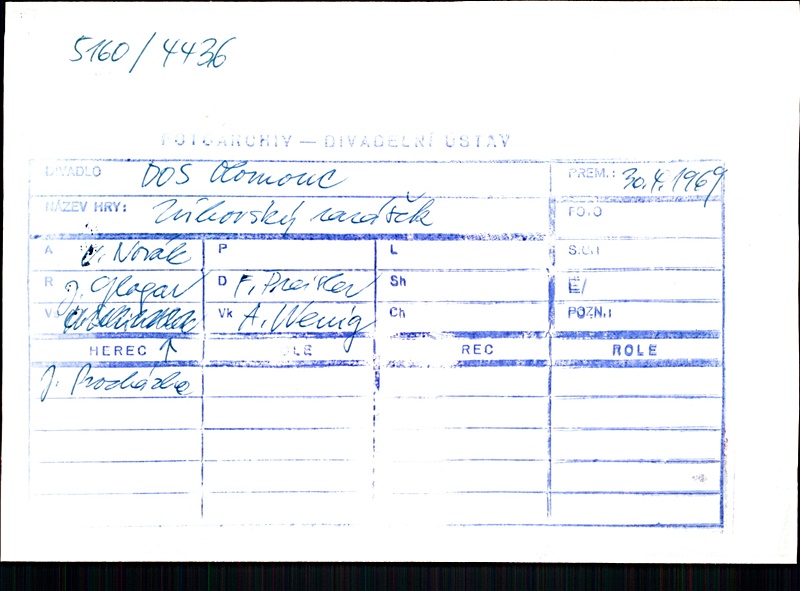 5160/4436
FOTOARCHIV — DIVADELNÍ ÚSTAV
DIVADLO DOS Olomouc PREM.: 30.4.1969
NÁZEV HRY: Zvíkovský rarášek FOTO
A V. Novák P L
R J. Glogar D F. Preisler Sh
Vk A. Wenig Ch POZN.:
HEREC ↑ ROLE
J. Procházka